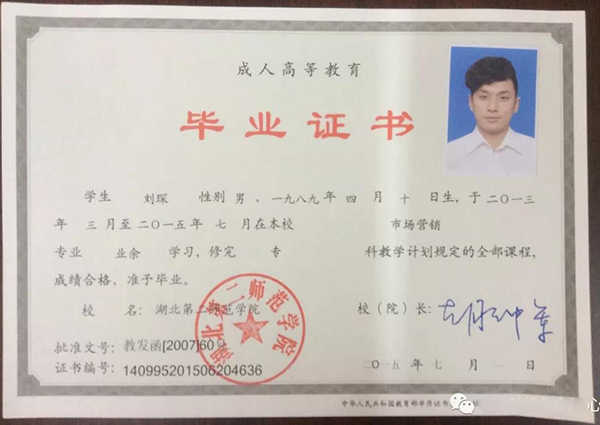 成人高等教育
毕业证书
学生 刘琛 性别 男 、一九八九年 四 月 十 日生，于 二〇一三
年 三 月至 二〇一五年 七 月在本校 市场营销
专业 业余 学习，修完 专 科教学计划规定的全部课程，
成绩合格，准予毕业。
校 名： 湖北第二师范学院 校（院）长：
批准文号：教发函[2007]60号
证书编号：140995201506204636
二〇一五年 七 月 日
湖北第二师范学院
中华人民共和国教育部学历证书
心